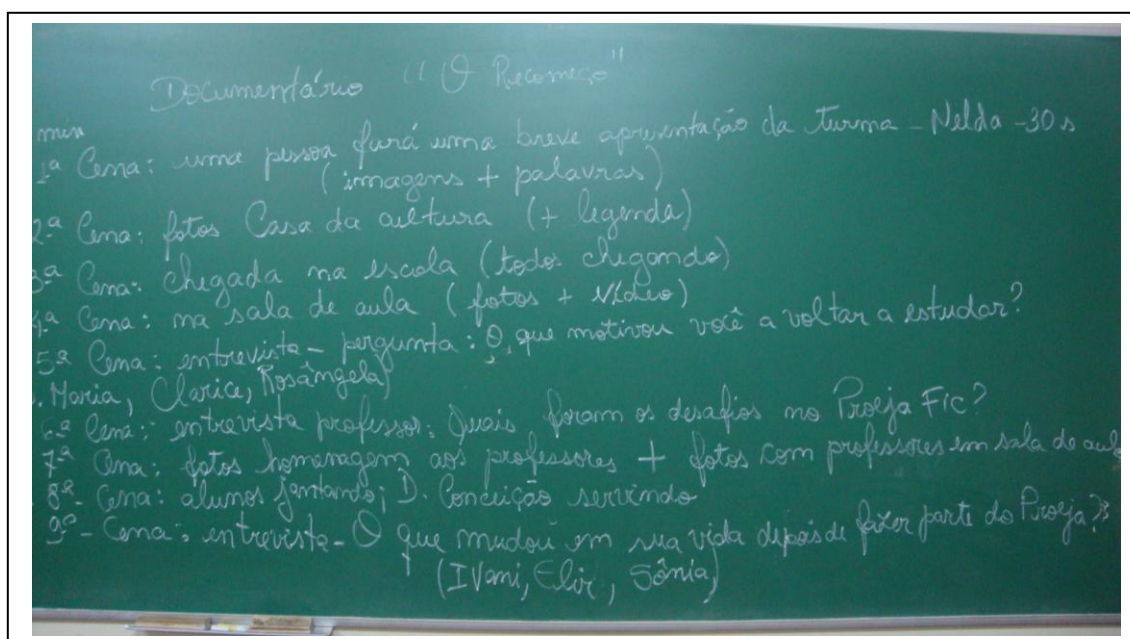 Documentário "O Recomeço"
min
1ª Cena: uma pessoa fará uma breve apresentação da turma - Nelda - 30 s
(imagens + palavras)
2ª Cena: fotos Casa da cultura (+ legenda)
3ª Cena: chegada na escola (todos chegando)
4ª Cena: na sala de aula (fotos + vídeo)
5ª Cena: entrevista - pergunta: O que motivou você a voltar a estudar?
Maria, Clarice, Rosângela)
6ª Cena: entrevista professor: Quais foram os desafios no Proeja Fic?
7ª Cena: fotos homenagem aos professores + fotos com professores em sala de aula
8ª - Cena: alunos jantando; D. Conceição servindo
9ª - Cena: entrevista - O que mudou em sua vida depois de fazer parte do Proeja?
(Ivani, Elir, Sônia,)